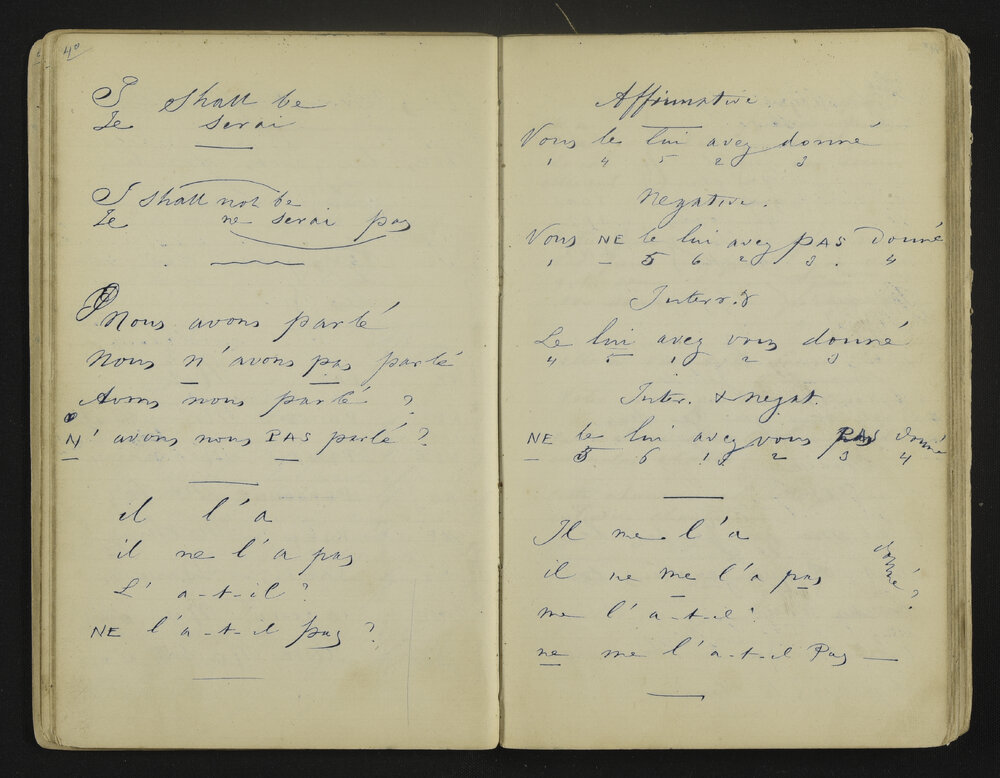 40
I shall be
Je serai
I shall not be
Je ne serai pas
Nous avons parlé
Nous n'avons pas parlé
Avons nous parlé ?
N'avons nous PAS parlé ?
il l'a
il ne l'a pas
L'a-t-il ?
NE l'a-t-il pas ?
Affirmative
Vous le lui avez donné
1 4 5 2 3
Negative.
Vous NE le lui avez PAS donné
1 – 5 6 2 3 . 4
Interr.g
Le lui avez vous donné
4 5 1 2 3
Inter. & negat.
NE le lui avez vous PAS donné
5 6 1 2 3 4
Il me l'a
il ne me l'a pas
donné ?
me l'a-t-il ?
ne me l'a-t-il Pas —